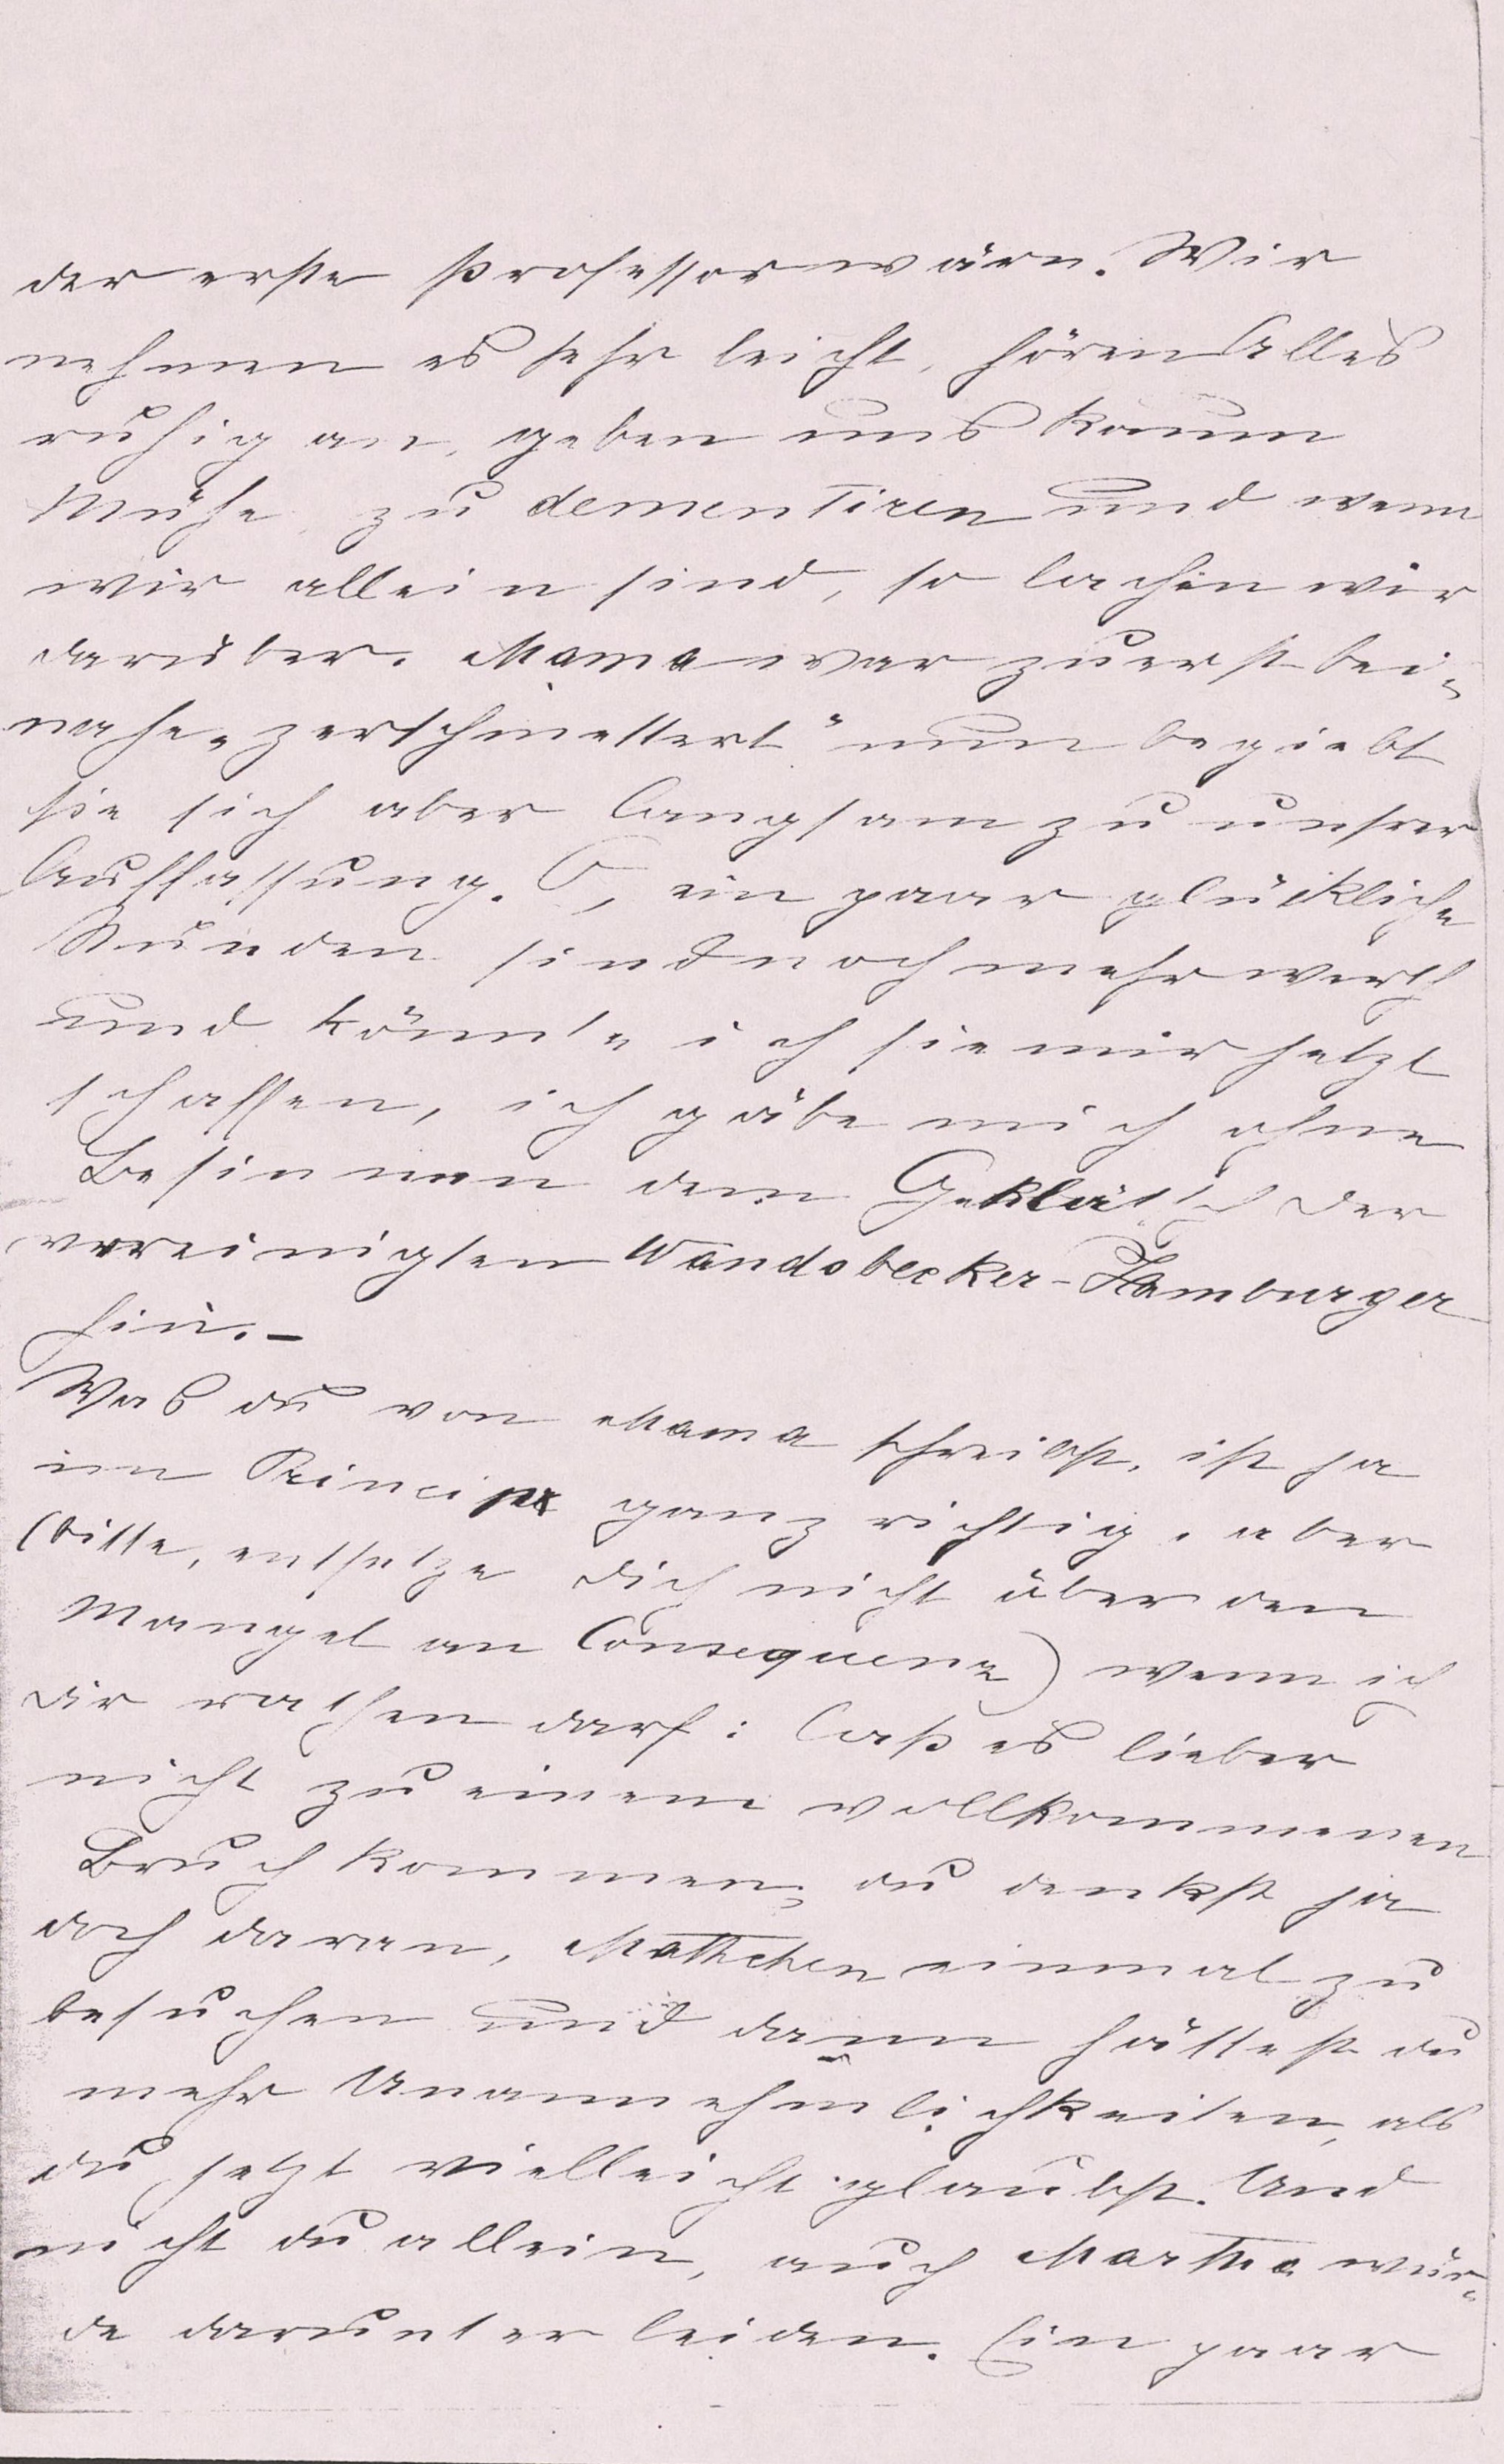 der erste Professor wären. Wir
nehmen es sehr leicht, hören Alles
ruhig an, geben uns kaum
Mühe, zu dementiren und wenn
wir allein sind, so lachen wir
darüber. Mama war zuerst bei-
nahe „zerschmettert" nun begiebt
sie sich aber langsam zu unsrer
Auffassung. O, ein paar glückliche
Stunden sind noch mehr werth
und könnte ich sie mir jetzt
schaffen, ich gäbe mich ohne
Besinnen dem Geklätsch der
vereinigten Wandsbecker-Hamburger
hin. –
Was du von Mama schreibst, ist ja
im Princip ganz richtig, aber
(bitte, entsetze dich nicht über den
Mangel an Consequenz) wenn ich
dir rathen darf: laß es lieber
nicht zu einem vollkommenen
Bruch kommen; du denkst ja
doch daran, Mathchen einmal zu
besuchen und dann hättest du
mehr Unannehmlichkeiten, als
du jetzt vielleicht glaubst. Und
nicht du allein, auch Martha wür-
de darunter leiden. Ein paar